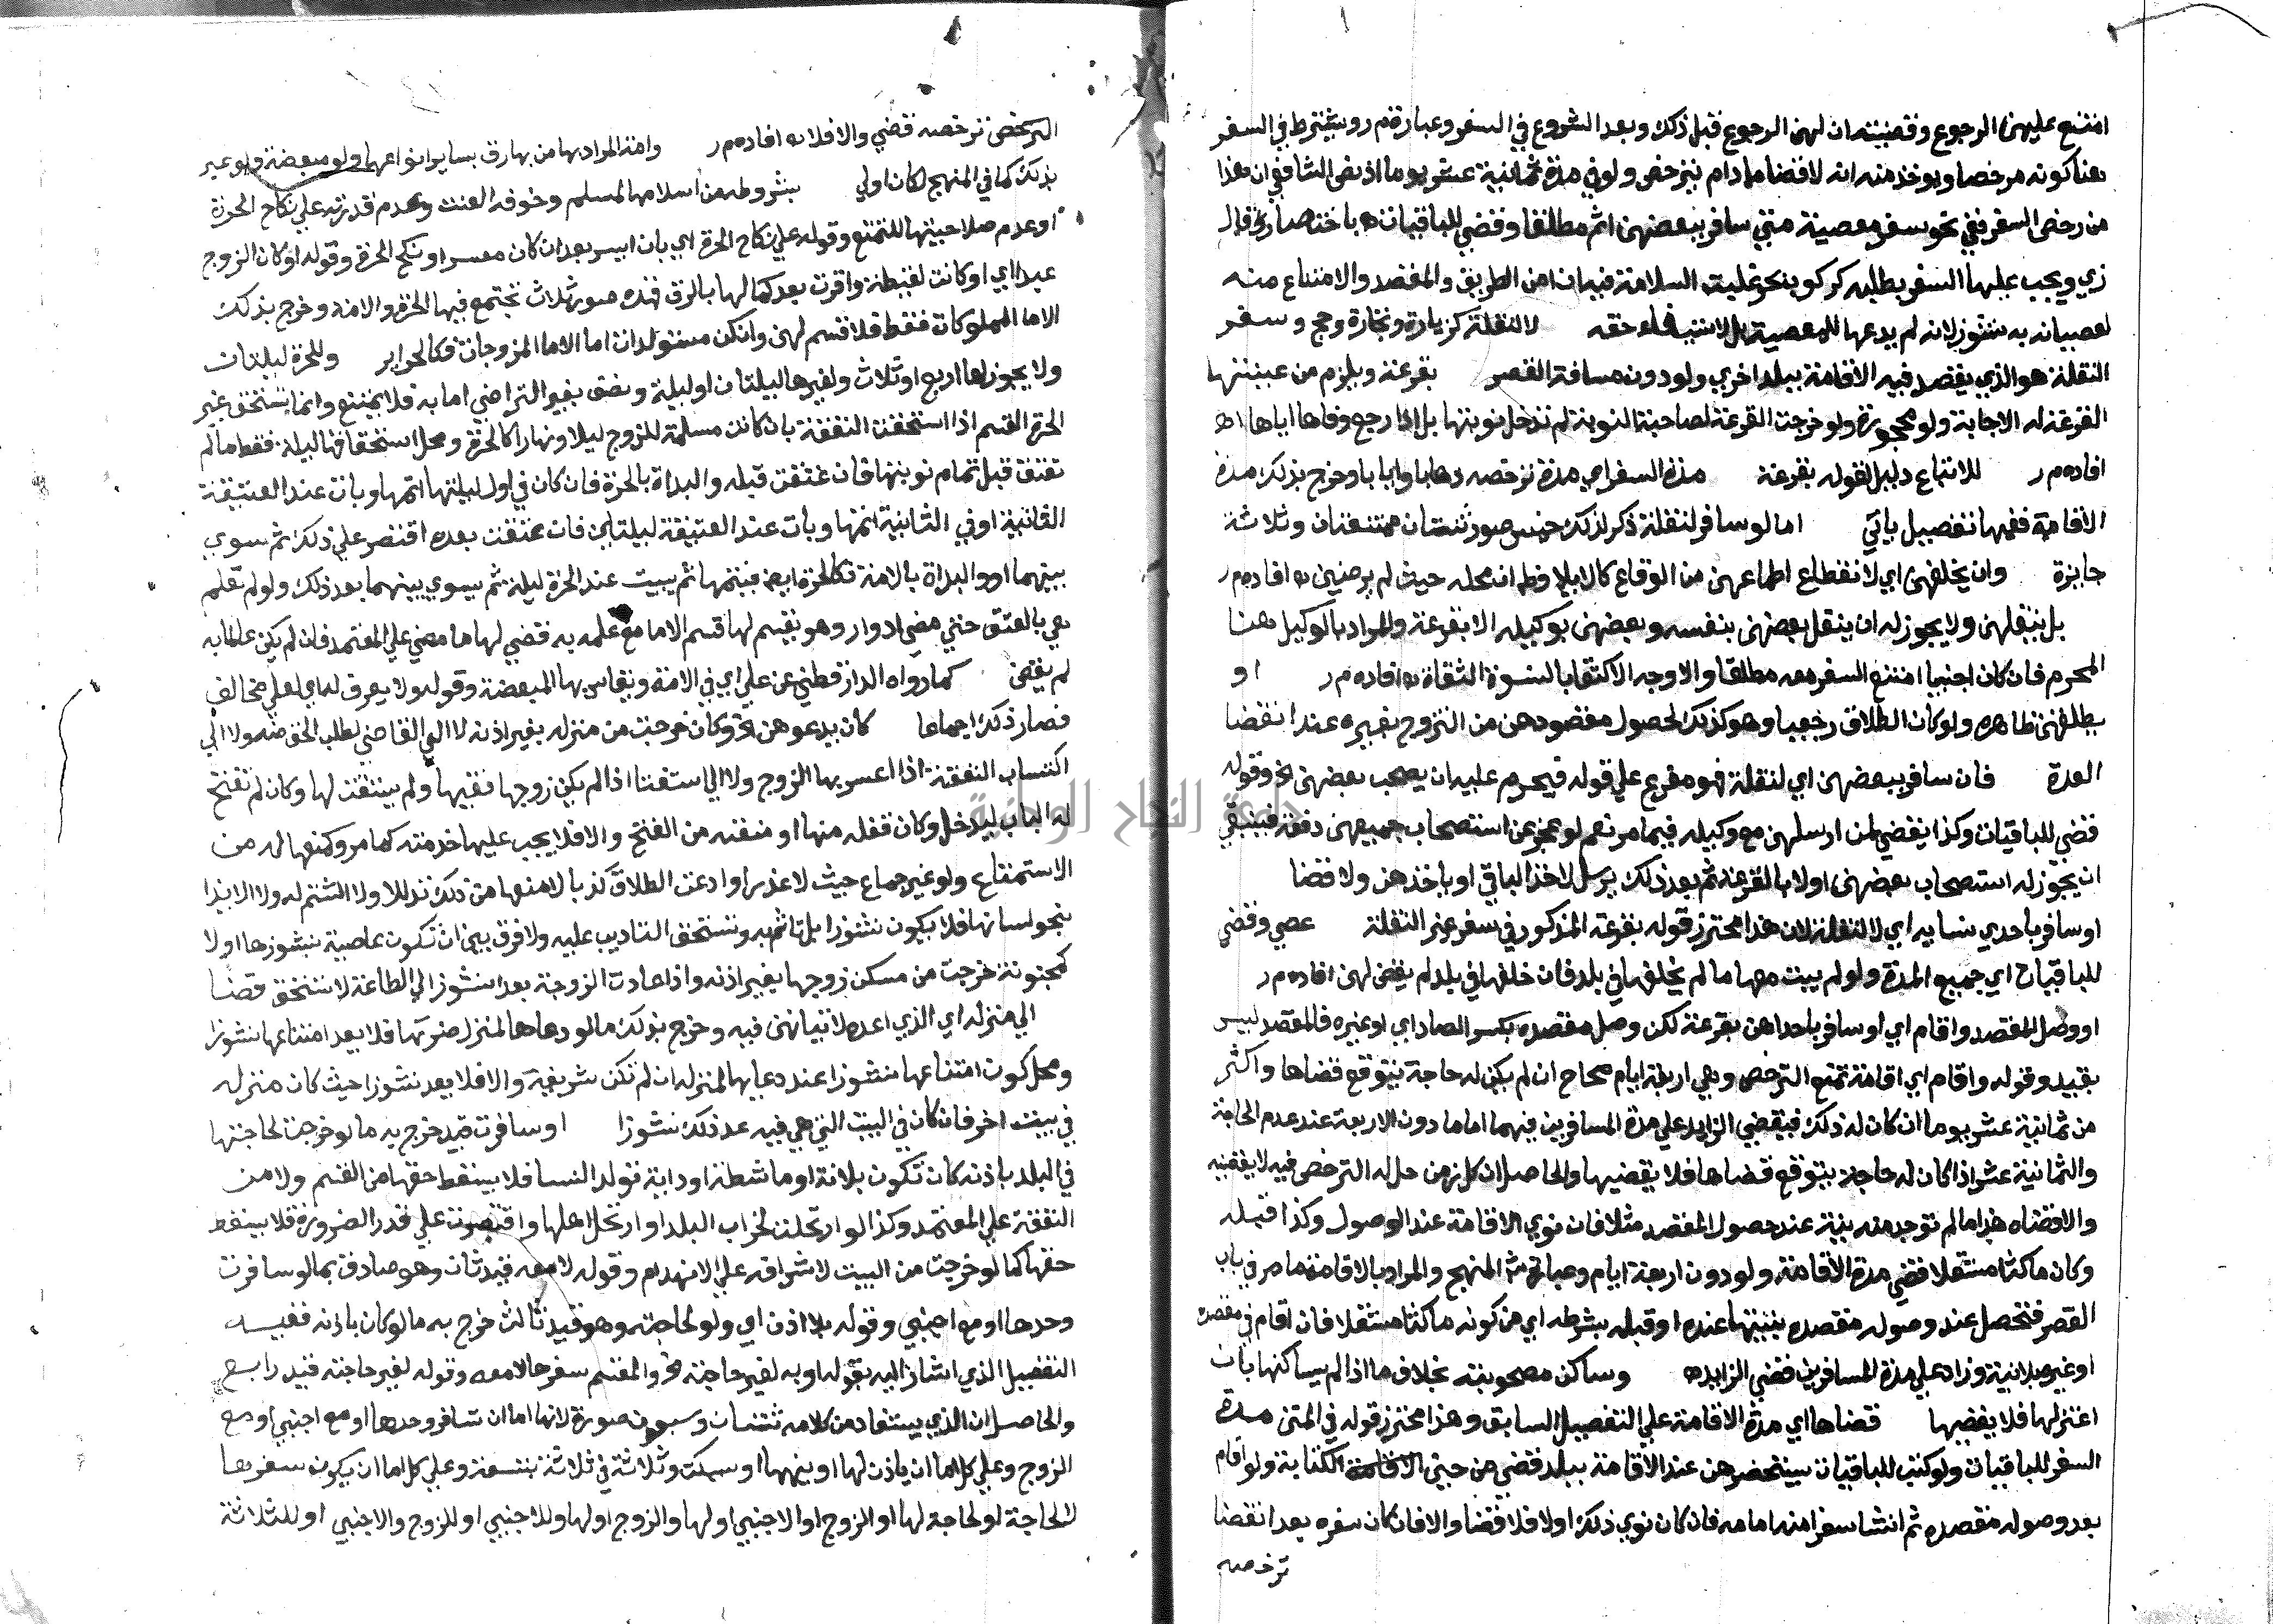 امتنع عليهن الرجوع وقضيته ان لهن الرجوع قبل ذلك وبعد الشروع في السفر وعبارة م ر ويشترط في السفر
هنا كونه مرخصا ويوخذ منه انه لا قضا ما دام يترخص ولو في مدة ثمانية عشر يوما اذ نص الشافعي ان هذا
من رخص السفر ففي نحو سفر معصية متي سافر ببعضهن اثم مطلقا وقضي للباقيات ه باختصار قال
زي ويجب عليها السفر بطلبه كركوب بحر غلبت السلامة فيه ان امن الطريق والمقصد والامتناع منه
لعصيانه به نشوز لانه لم يدعها للمعصية بل لاستيفاء حقه لا لنقلة كزيارة وتجارة وحج وسفر
النقلة هو الذي يقصد فيه الاقامة ببلد اخري ولو دون مسافة القصر بقرعة ويلزم من عينتها
القرعة له الاجابة ولو محجورة ولو خرجت القرعة لصاحبة النوبة لم تدخل نوبتها بل اذا رجع وفاها اياها اه
افاده م ر للاتباع دليل لقوله بقرعة مدة السفر اي مدة ترخصه ذهابا وايابا وخرج بذلك مدة
الاقامة ففيها تفصيل ياتي اما لو سافر لنقلة ذكر لذلك خمس صور ثنتان ممتنعتان وثلاثة
جايزة وان يخلفهن اي لانقطاع اطماعهن من الوقاع كالايلا فظهر ان محله حيث لم يرضين ه افاده م ر
بل ينقلهن ولا يجوز له ان ينقل بعضهن بنفسه وبعضهن بوكيله الا بقرعة والمراد بالوكيل هنا
المحرم فان كان اجنبيا امتنع السفر معه مطلقا والاوجه الاكتفا بالنسوة الثقاة ه افاده م ر او
يطلقهن ظاهره ولو كان الطلاق رجعيا وهو كذلك لحصول مقصودهن من التزوج بغيره عند انقضا
العدة فان سافر ببعضهن اي لنقلة فهو مفرع علي قوله فيحرم عليه ان يصحب بعضهن الخ وقوله
قضي للباقيات وكذا يقضي لمن ارسلهن مع وكيله فيما مر نعم لو عجز عن استصحاب جميعهن دفعة فينبغي
ان يجوز له استصحاب بعضهن اولا بالقرعة ثم بعد ذلك يرسل لاخذ الباقي او ياخذهن ولا قضا
او سافر باحدي نسايه اي لا لنقلة لان هذا محترز قوله بقرعة المذكور في سفر غير النقلة عصي وقضي
للباقيات اي جميع المدة ولو لم يبت معها ما لم يخلفها في بلد فان خلفها في بلد لم يقض لهن افاده م ر
او وصل المقصد واقام اي او سافر باحداهن بقرعة لكن وصل مقصده بكسر الصاد اي او غيره فالمقصد ليس
بقيد وقوله واقام اي اقامة تمنع الترخص وهي اربعة ايام صحاح ان لم يكن له حاجة يتوقع قضاها واكثر
من ثمانية عشر يوما ان كان له ذلك فيقضي الزايد علي مدة المسافرين فيهما اما ما دون الاربعة عند عدم الحاجة
والثمانية عشر اذا كان له حاجة يتوقع قضاها فلا يقضيها والحاصل ان كل زمن حل له الترخص فيه لا يقضيه
والا قضاه هذا ما لم توجد منه نية عند حصول المقصد مثلا فان نوي الاقامة عند الوصول وكذا قبله
وكان ماكثا مستقلا قضي مدة الاقامة ولو دون اربعة ايام وعبارة ش المنهج والمراد بالاقامة ما مر في باب
القصر فتحصل عند وصوله مقصده بنيتها عنده او قبله بشرطه اي من كونه ماكثا مستقلا فان اقام في مقصده
او غيره بلا نية وزاد علي مدة المسافرين قضي الزايد ه وساكن مصحوبته بخلاف ما اذا لم يساكنها بان
اعتزلها فلا يقضيها قضاها اي مدة الاقامة علي التفصيل السابق وهذا محترز قوله في المتن مدة
السفر للباقيات ولو كتب للباقيات يستحضرهن عند الاقامة ببلد قضي من حين الكتابة ولو اقام
بعد وصوله مقصده ثم انشا سفرا منه امامه فان كان نوي ذلك اولا فلا قضا والا فان كان سفره بعد انقضا
ترخصه
الترخص ترخصه قضي والا فلا ه افاده م ر وامة المراد بها من بها رق بساير انواعها ولو مبعضة ولو عبر
بذلك كما في المنهج لكان اولي بشروطه من اسلامها لمسلم وخوفه العنت وعدم قدرته علي نكاح الحرة
او عدم صلاحيتها للتمتع وقوله علي نكاح الحرة اي بان ايسر بعد ان كان معسرا ونكح الحرة وقوله او كان الزوج
عبدا اي او كانت لقيطة واقرت بعد كمالها بالرق فهذه صور ثلاث تجتمع فيها الحرة والامة وخرج بذلك
الاما المملوكات فقط فلا قسم لهن وان كن مستولدات اما الاما المزوجات فكالحراير وللحرة ليلتان
ولا يجوز لها اربع او ثلاث ولغيرها ليلتان او ليلة ونصف بغير التراضي اما به فلا يمتنع وانما تستحق غير
الحرة القسم اذا استحقت النفقة بان كانت مسلمة للزوج ليلا ونهارا كالحرة ومحل استحقاقها ليلة فقط ما لم
تعتق قبل تمام نوبتها فان عتقت قبله والبداة بالحرة فان كان في اول ليلتيها اتمها وبات عند العتيقة
الثانية او في الثانية اتمها وبات عند العتيقة ليلتين فان عتقت بعده اقتصر علي ذلك ثم سوي
بينهما او والبداة بالامة فكالحرة ايضا فيتمها ثم يبيت عند الحرة ليلة ثم يسوي بينهما بعد ذلك ولو لم تعلم
هي بالعتق حتي مضي ادوار وهو يقسم لها قسم الاما مع علمه به قضي لها ما مضي علي المعتمد فان لم يكن عالما به
لم يقض كما رواه الدارقطني عن علي اي في الامة ويقاس بها المبعضة وقوله ولا يعرف له اي لعلي مخالف
فصار ذلك اجماعا كان يدعوهن الخ وكان خرجت من منزله بغير اذنه لا الي القاضي لطلب الحق منه ولا الي
اكتساب النفقة اذا اعسر بها الزوج ولا الي استفتا اذا لم يكن زوجها فقيها ولم يستفت لها وكان لم تفتح
له الباب ليدخل وكان قفله منها او منعته من الفتح والا فلا يجب عليها خدمته كما مر وكمنعها له من
الاستمتاع ولو غير جماع حيث لا عذر او ادعت الطلاق كذبا لا منعها من ذلك تدللا ولا الشتم له ولا الايذا
بنحو لسانها فلا يكون نشوزا بل تاثم به وتستحق التاديب عليه ولا فرق بين ان تكون عاصية بنشوزها او لا
كمجنونة خرجت من مسكن زوجها بغير اذنه واذا عادت الزوجة بعد النشوز الي الطاعة لا تستحق قضا
الي منزله اي الذي اعده لاتيانهن فيه وخرج بذلك ما لو دعاها لمنزل ضرتها فلا يعد امتناعها نشوزا
ومحل كون امتناعها نشوزا عند دعايها لمنزله ان لم تكن شريفة والا فلا يعد نشوزا حيث كان منزله
في بيت اخر فان كان في البيت التي هي فيه عد ذلك نشوزا او سافرت قيد خرج به ما لو خرجت لحاجتها
في البلد باذنه كان تكون بلانة او ماشطة او داية تولد النسا فلا يسقط حقها من القسم ولا من
النفقة علي المعتمد وكذا لو ارتحلت لخراب البلد او ارتحل اهلها واقتصرت علي قدر الضرورة فلا يسقط
حقها كما لو خرجت من البيت لاشرافه علي الانهدام وقوله لا معه قيد ثان وهو صادق بما لو سافرت
وحدها او مع اجنبي وقوله بلا اذن اي ولو لحاجته وهو قيد ثالث خرج به ما لو كان باذنه ففيه
التفصيل الذي اشار اليه بقوله او به لغير حاجته الخ والمقسم سفرها لا معه وقوله لغير حاجته قيد رابع
والحاصل ان الذي يستفاد من كلامه ثنتان وسبعون صورة لانها اما ان تسافر وحدها او مع اجنبي او مع
الزوج وعلي كل اما ان ياذن لها او ينهها او سكت وثلاثة في ثلاثة بتسعة وعلي كل اما ان يكون سفرها
لا لحاجة او لحاجة لها او للزوج او الاجنبي او لها وللزوج او لها وللاجنبي او للزوج والاجنبي او للثلاثة